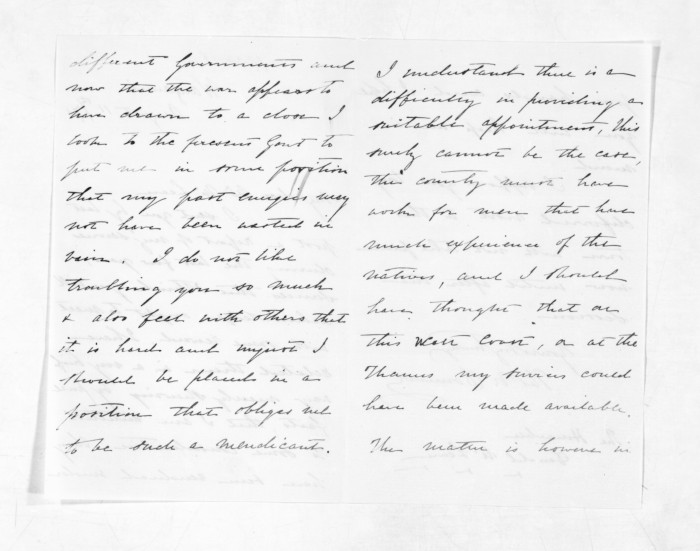 different Governments and
now that the war appears to
have drawn to a close I
look to the present Govt to
put me in some position
that my past energies may
not have been wasted in
vain. I do not like
troubling you so much
& also feel with others that
it is hard and unjust I
should be placed in a
position that obliges me
to be such a mendicant.
I understand there is a
difficulty in providing a
suitable appointment, this
surely cannot be the case,
the country must have
work for men that have
much experience of the
natives, and I should
have thought that on
this West Coast, or at the
Thames my services could
have been made available.
The matter is however in